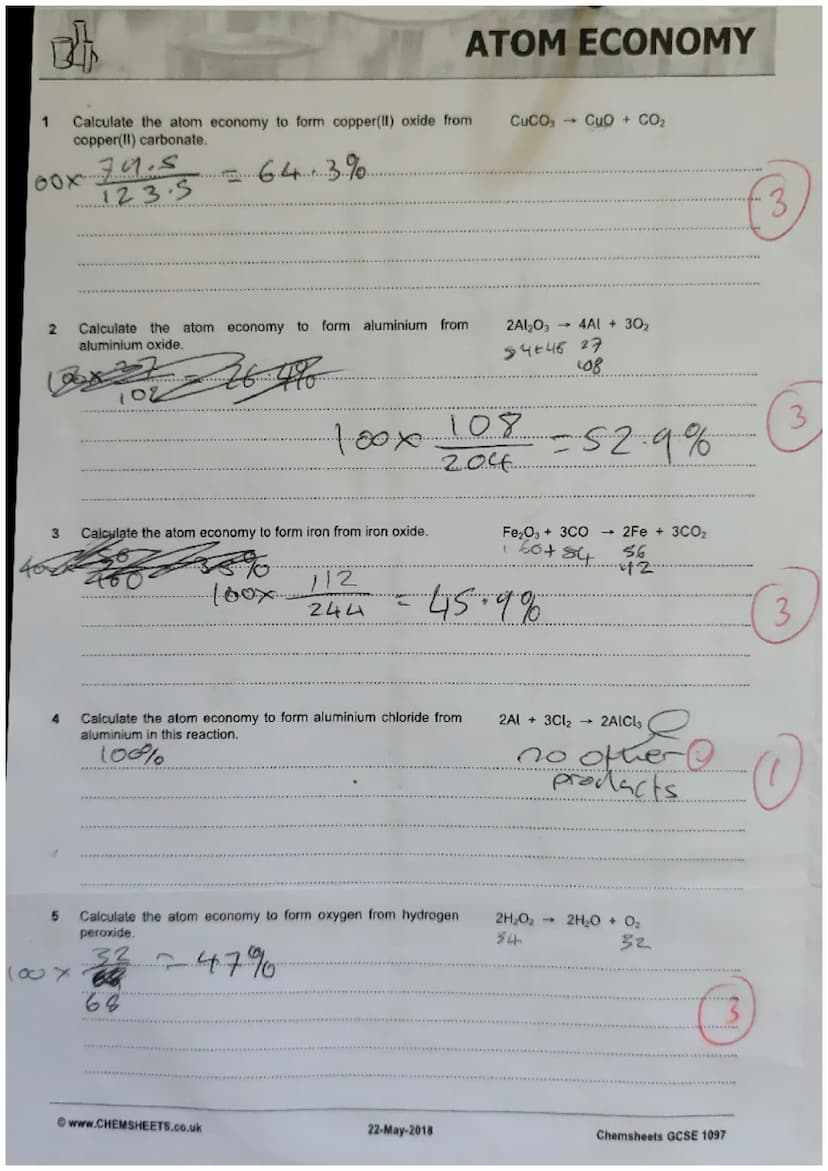 ATOM ECONOMY
1 Calculate the atom economy to form copper(II) oxide from CuCO₃ → CuO + CO₂
copper(II) carbonate.
00× 79.5 / 123.5 = 64.3%
3
2 Calculate the atom economy to form aluminium from 2Al₂O₃ → 4Al + 3O₂
aluminium oxide. 54+48 27
108
102
100× 108 / 204 = 52.9%
3
3 Calculate the atom economy to form iron from iron oxide. Fe₂O₃ + 3CO → 2Fe + 3CO₂
160+84 56
112
100× 112 / 244 = 45.9%
3
4 Calculate the atom economy to form aluminium chloride from 2Al + 3Cl₂ → 2AlCl₃
aluminium in this reaction.
100% no other
products
1
5 Calculate the atom economy to form oxygen from hydrogen 2H₂O₂ → 2H₂O + O₂
peroxide. 34 32
100 × 32 / 68 = 47%
3
© www.CHEMSHEETS.co.uk 22-May-2018 Chemsheets GCSE 1097